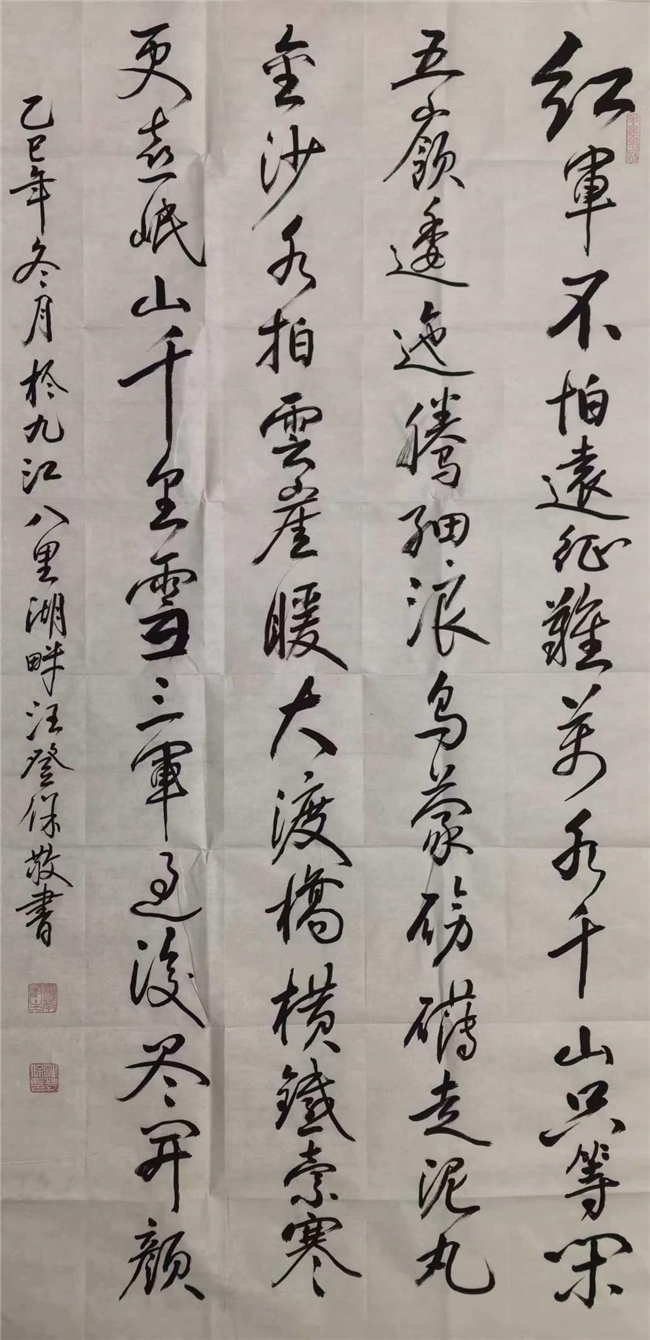 红軍不怕遠征難萬水千山只等閑
五嶺逶迤騰細浪烏蒙磅礴走泥丸
金沙水拍雲崖暖大渡橋橫鐵索寒
更喜岷山千里雪三軍過後尽開顏
乙巳年冬月於九江八里湖畔汪登保敬書